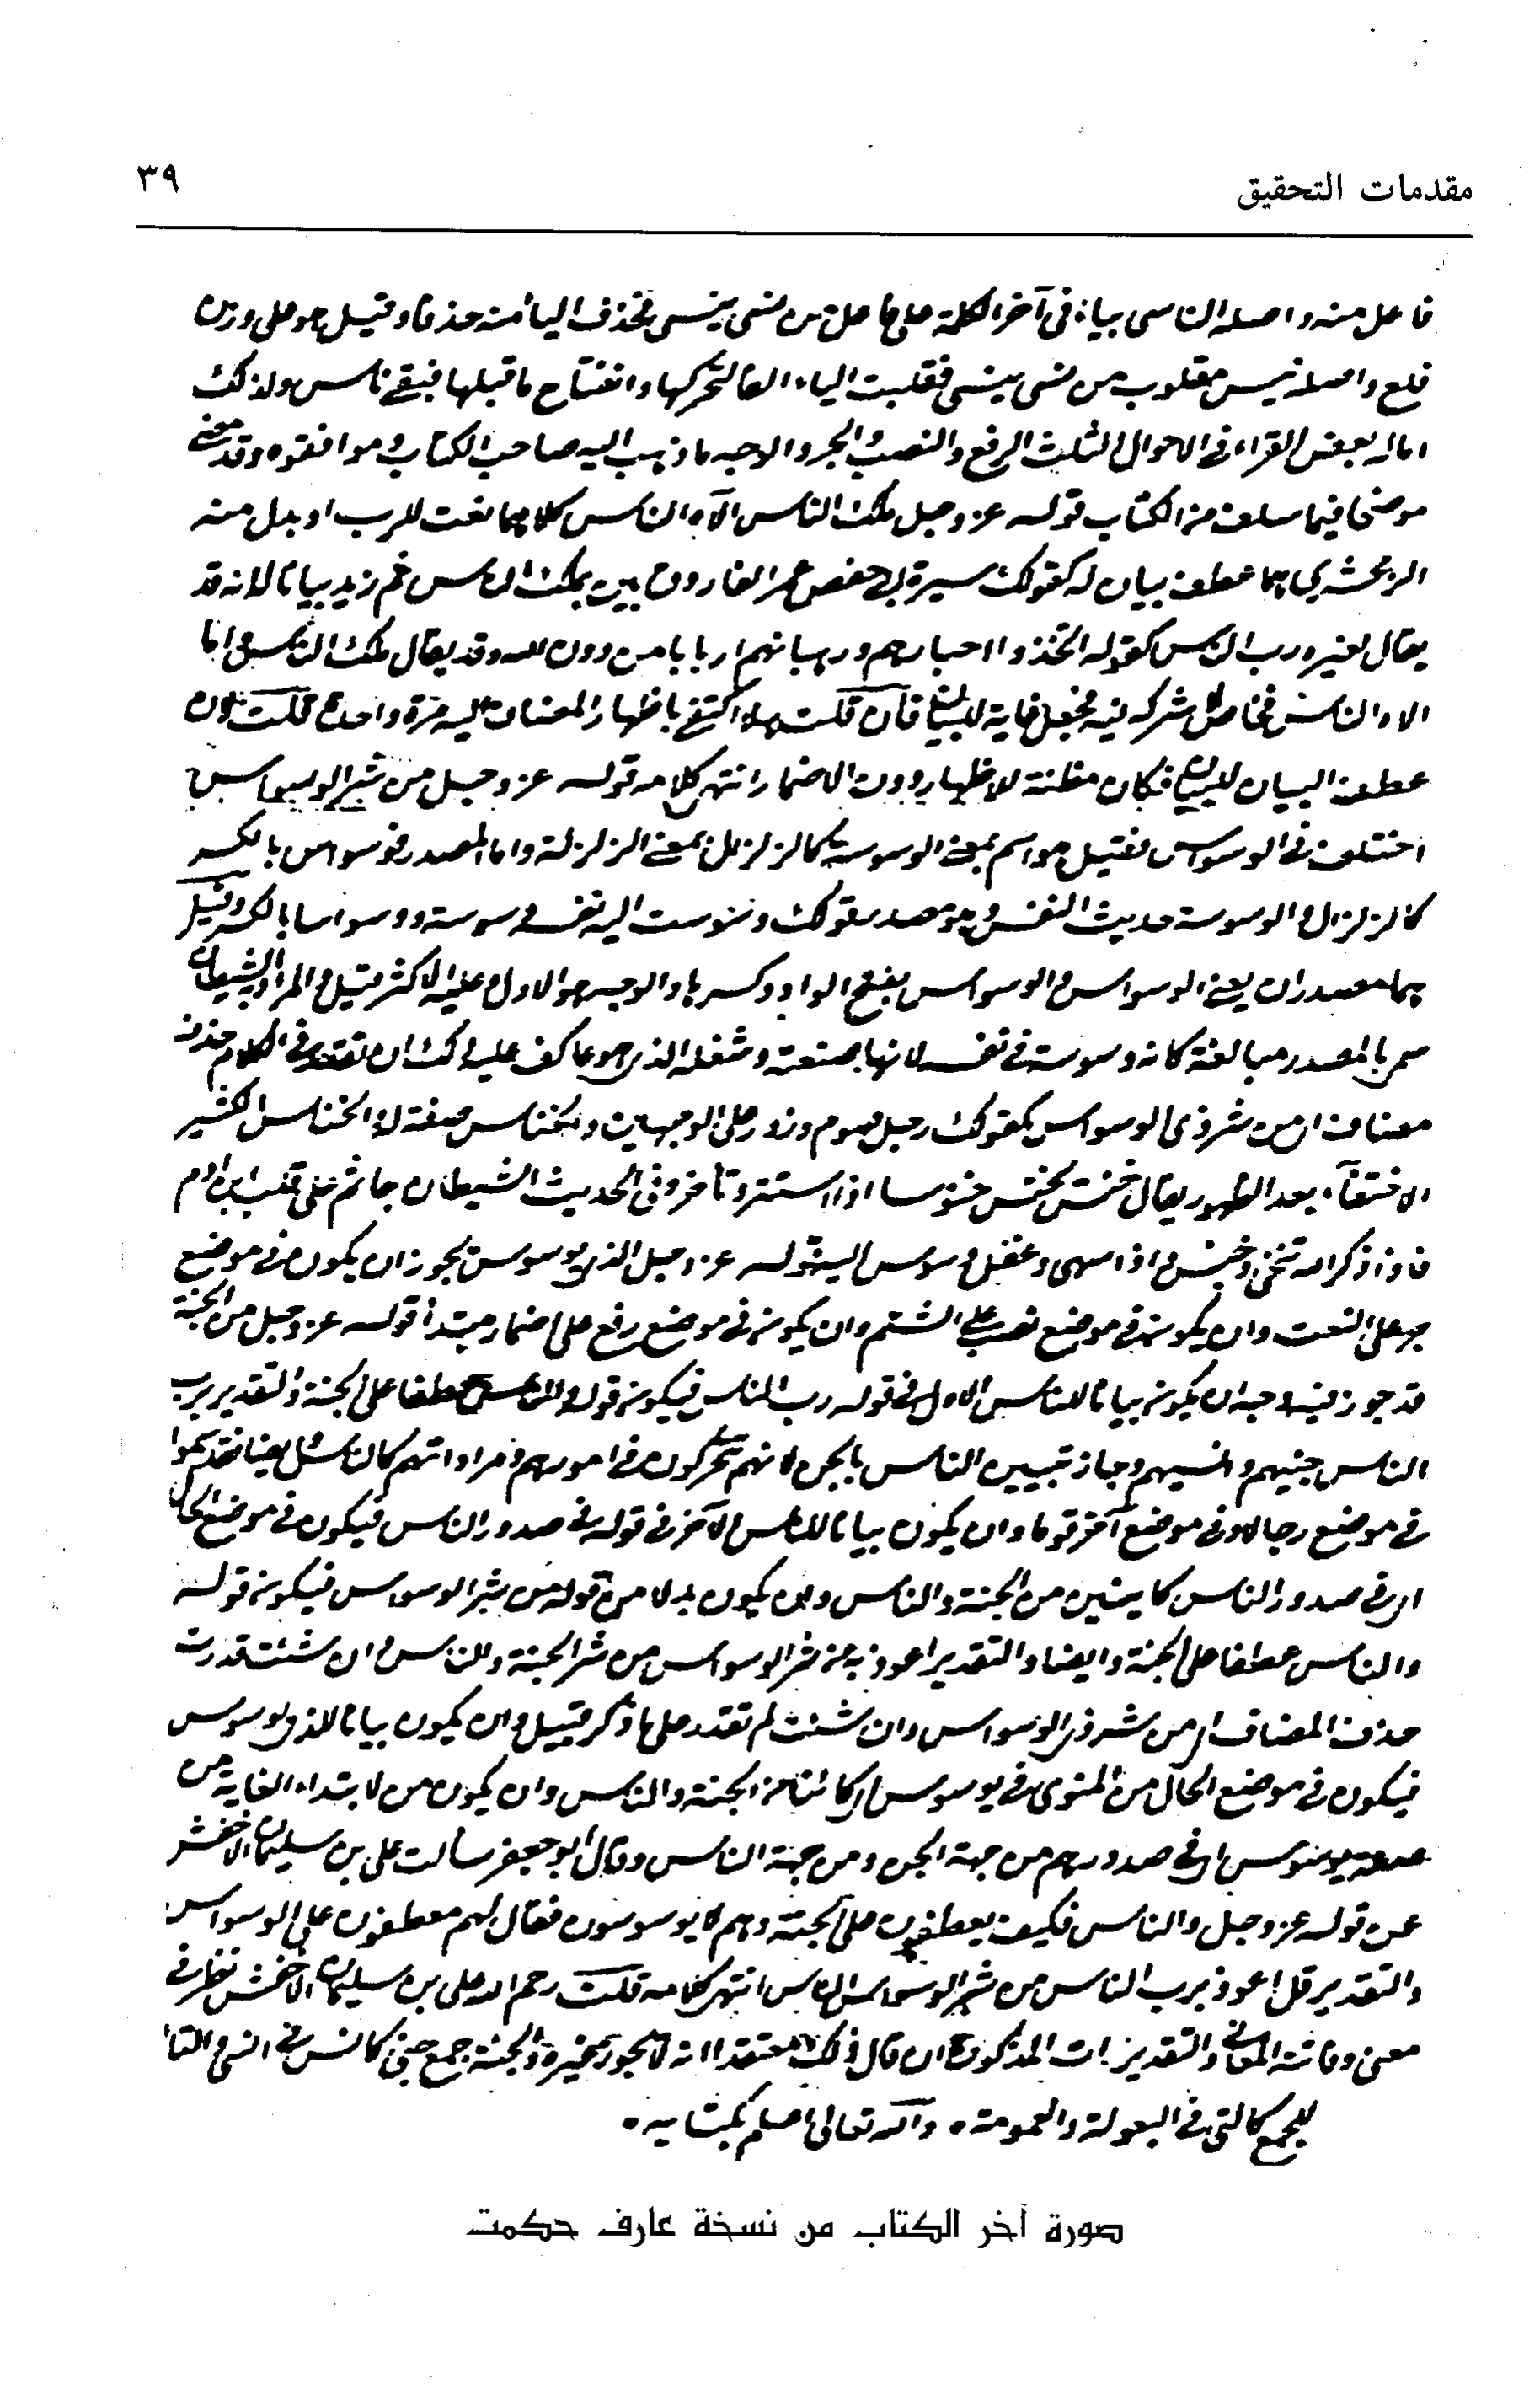 مقدمات التحقيق ٣٩
فاعل منه واصله الناسى بياء فى آخر الكلمة على فاعل من نسى ينسى فحذف الياء منه حذفا وقيل هو على وزن
فلع واصله نيس مقلوب من نسى ينسى فقلبت الياء الفا لتحركها وانفتاح ما قبلها فبقى ناس ولذلك
اماله بعض القراء فى الاحوال الثلث الرفع والنصب والجر والاوجه ما ذهب اليه صاحب الكتاب وموافقوه وقد مضى
موضحا فيما سلف من الكتاب قوله عز وجل ملك الناس اله الناس كلاهما نعت للرب او بدل منه
الزمخشرى هما عطف بيان له كقولك سيرة ابى حفص عمر الفاروق بين بملك الناس ثم زيد بيانا لانه قد
يقال لغيره رب الناس كقوله اتخذوا احبارهم ورهبانهم اربابا من دون الله وقد يقال ملك الناس واما
اله الناس فخاص لا شركة فيه فجعل غاية للبيان فان قلت هلا اكتفى باظهار المضاف اليه مرة واحدة قلت لان
عطف البيان للبيان فكان مظنة للاظهار دون الاضمار انتهى كلامه قوله عز وجل من شر الوسواس
اختلف فى الوسواس فقيل هو اسم بمعنى الوسوسة كالزلزال بمعنى الزلزلة واما المصدر فوسواس بالكسر
كالزلزال والوسوسة حديث النفس وهو مصدر قولك وسوست اليه نفسه وسوسة ووسواسا بالكسر وقيل
هما مصدران يعنى الوسواس والوسواس بفتح الواو وكسرها والوجه هو الاول وعليه الاكثر قيل والمراد به الشيطان
سمى بالمصدر مبالغة كانه وسوسة فى نفسه لانها صنعته وشغله الذى هو عاكف عليه ولك ان تقدر فى الكلام حذف
مضاف اى من شر ذى الوسواس كقولك رجل صوم وزور على الوجهين والخناس صفة له الخناس الكثير
الاختفاء بعد الظهور يقال خنس يخنس خنوسا اذا استتر وتاخر وفى الحديث الشيطان جاثم على قلب ابن ادم
فاذا ذكر الله تنحى وخنس واذا سهى وغفل وسوس اليه قوله عز وجل الذى يوسوس يجوز ان يكون فى موضع
جر على النعت وان يكون فى موضع نصب على الشتم وان يكون فى موضع رفع على اضمار مبتدأ قوله عز وجل من الجنة
قد جوز فيه اوجه ان يكون بيانا للناس الاول فى قوله رب الناس فيكون قوله والناس عطفا على الجنة والتقدير برب
الناس جنيهم وانسيهم وجاز تبيين الناس بالجن لانهم يتحركون فى امورهم ومراداتهم كالناس ايضا فقد سموا
فى موضع رجالا وفى موضع آخر قوما وان يكون بيانا للناس الآخر فى قوله فى صدور الناس فيكون فى موضع الحال
اى فى صدور الناس كائنين من الجنة والناس وان يكون بدلا من قوله من شر الوسواس فيكون قوله
والناس عطفا على الجنة وايضا والتقدير اعوذ به من شر الوسواس من شر الجنة والناس وان شئت قدرت
حذف المضاف اى من شر ذى الوسواس وان شئت لم تقدر على ما ذكر قبيل وان يكون بيانا للذى يوسوس
فيكون فى موضع الحال من المنوى فى يوسوس اى كائنا من الجنة والناس وان يكون من لابتداء الغاية من
صلة يوسوس اى فى صدورهم من جهة الجن ومن جهة الناس وقال ابو جعفر سالت على بن سليمان الاخفش
عن قوله عز وجل والناس فكيف يعطفون على الجنة وهم لا يوسوسون فقال لهم معطفون على الوسواس
والتقدير قل اعوذ برب الناس من شر الوسواس والناس انتهى كلامه قلت رحم الله على بن سليمان الاخفش نظر فى
معنى وفاتته المعانى والتقديرات المذكورة ان قال ذلك معتقدا انه لا يجوز غيره والجنة جمع جنى كانس فى انسى والتا
للجمع كالتى فى البعولة والعمومة ٠ والله تعالى اعلم بكتابه ٠
صورة آخر الكتاب من نسخة عارف حكمت